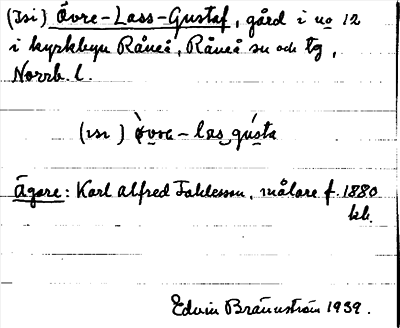 (Isi) Övre-Lass-Gustaf, gård i no 12
i kyrkbyn Råneå, Råneå sn och tg,
Norrb. l.
(ısı) òvre-las gústa
Ägare: Karl Alfred Fahlesson, målare f. 1880
kb.
Edvin Brännström 1939.